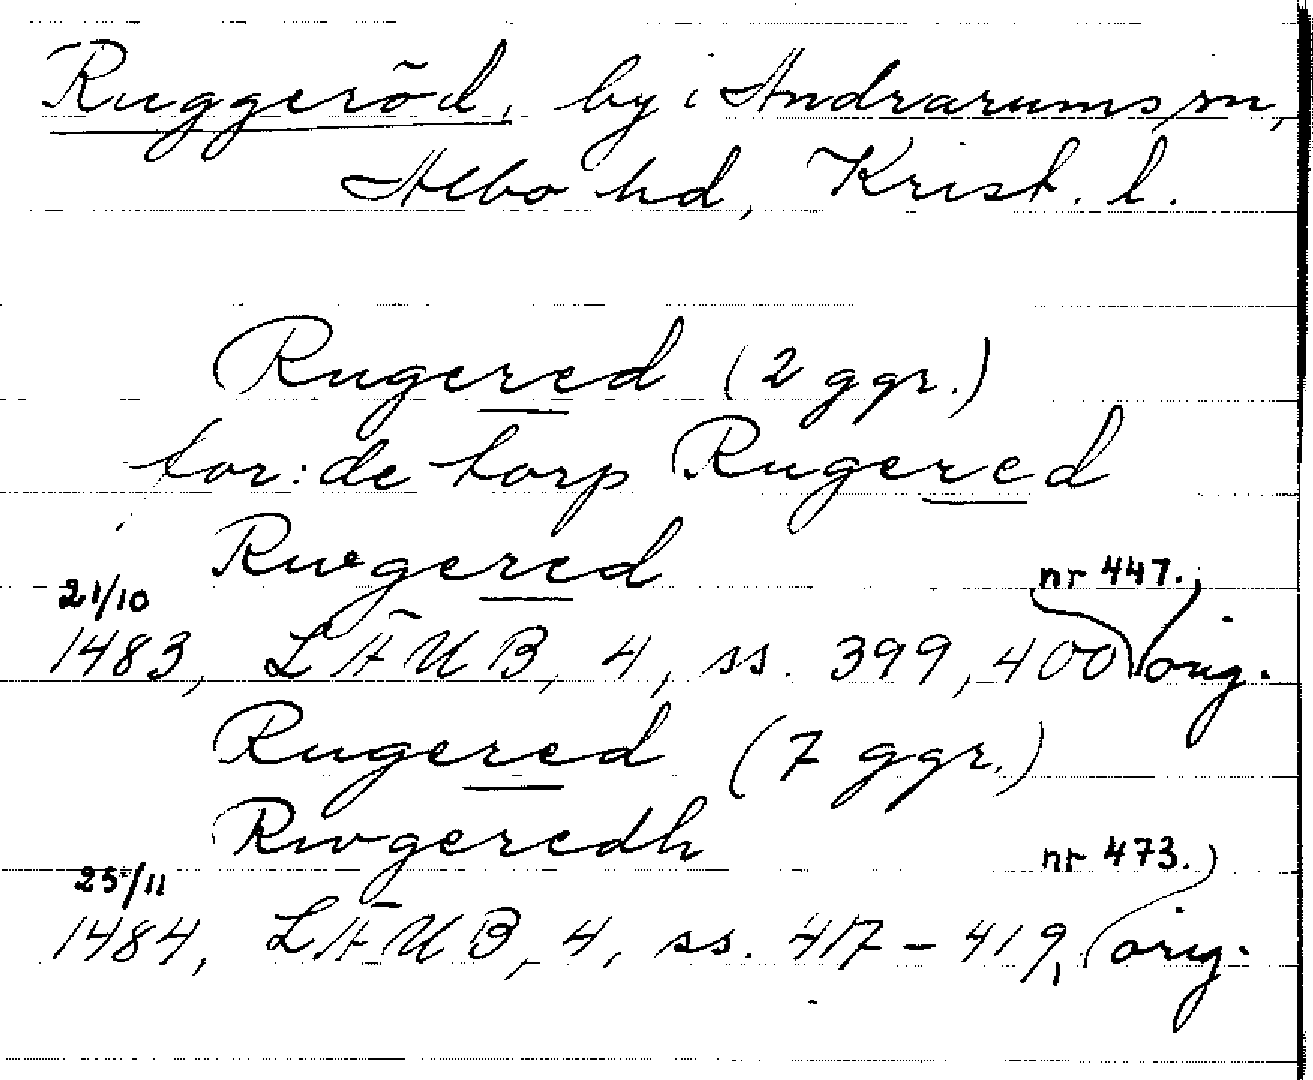 Ruggeröd, by i Andrarums sn,
Albo hd, Krist. l.
Rugered (2 ggr.)
tor: de torp Rugered
Rwgered
21/10 nr 447.
1483, LÄUB, 4, ss. 399, 400 orig.
Rugered (7 ggr.)
Rwgeredh
25/11 nr 473.
1484, LÄUB, 4, ss. 417-419, orig.